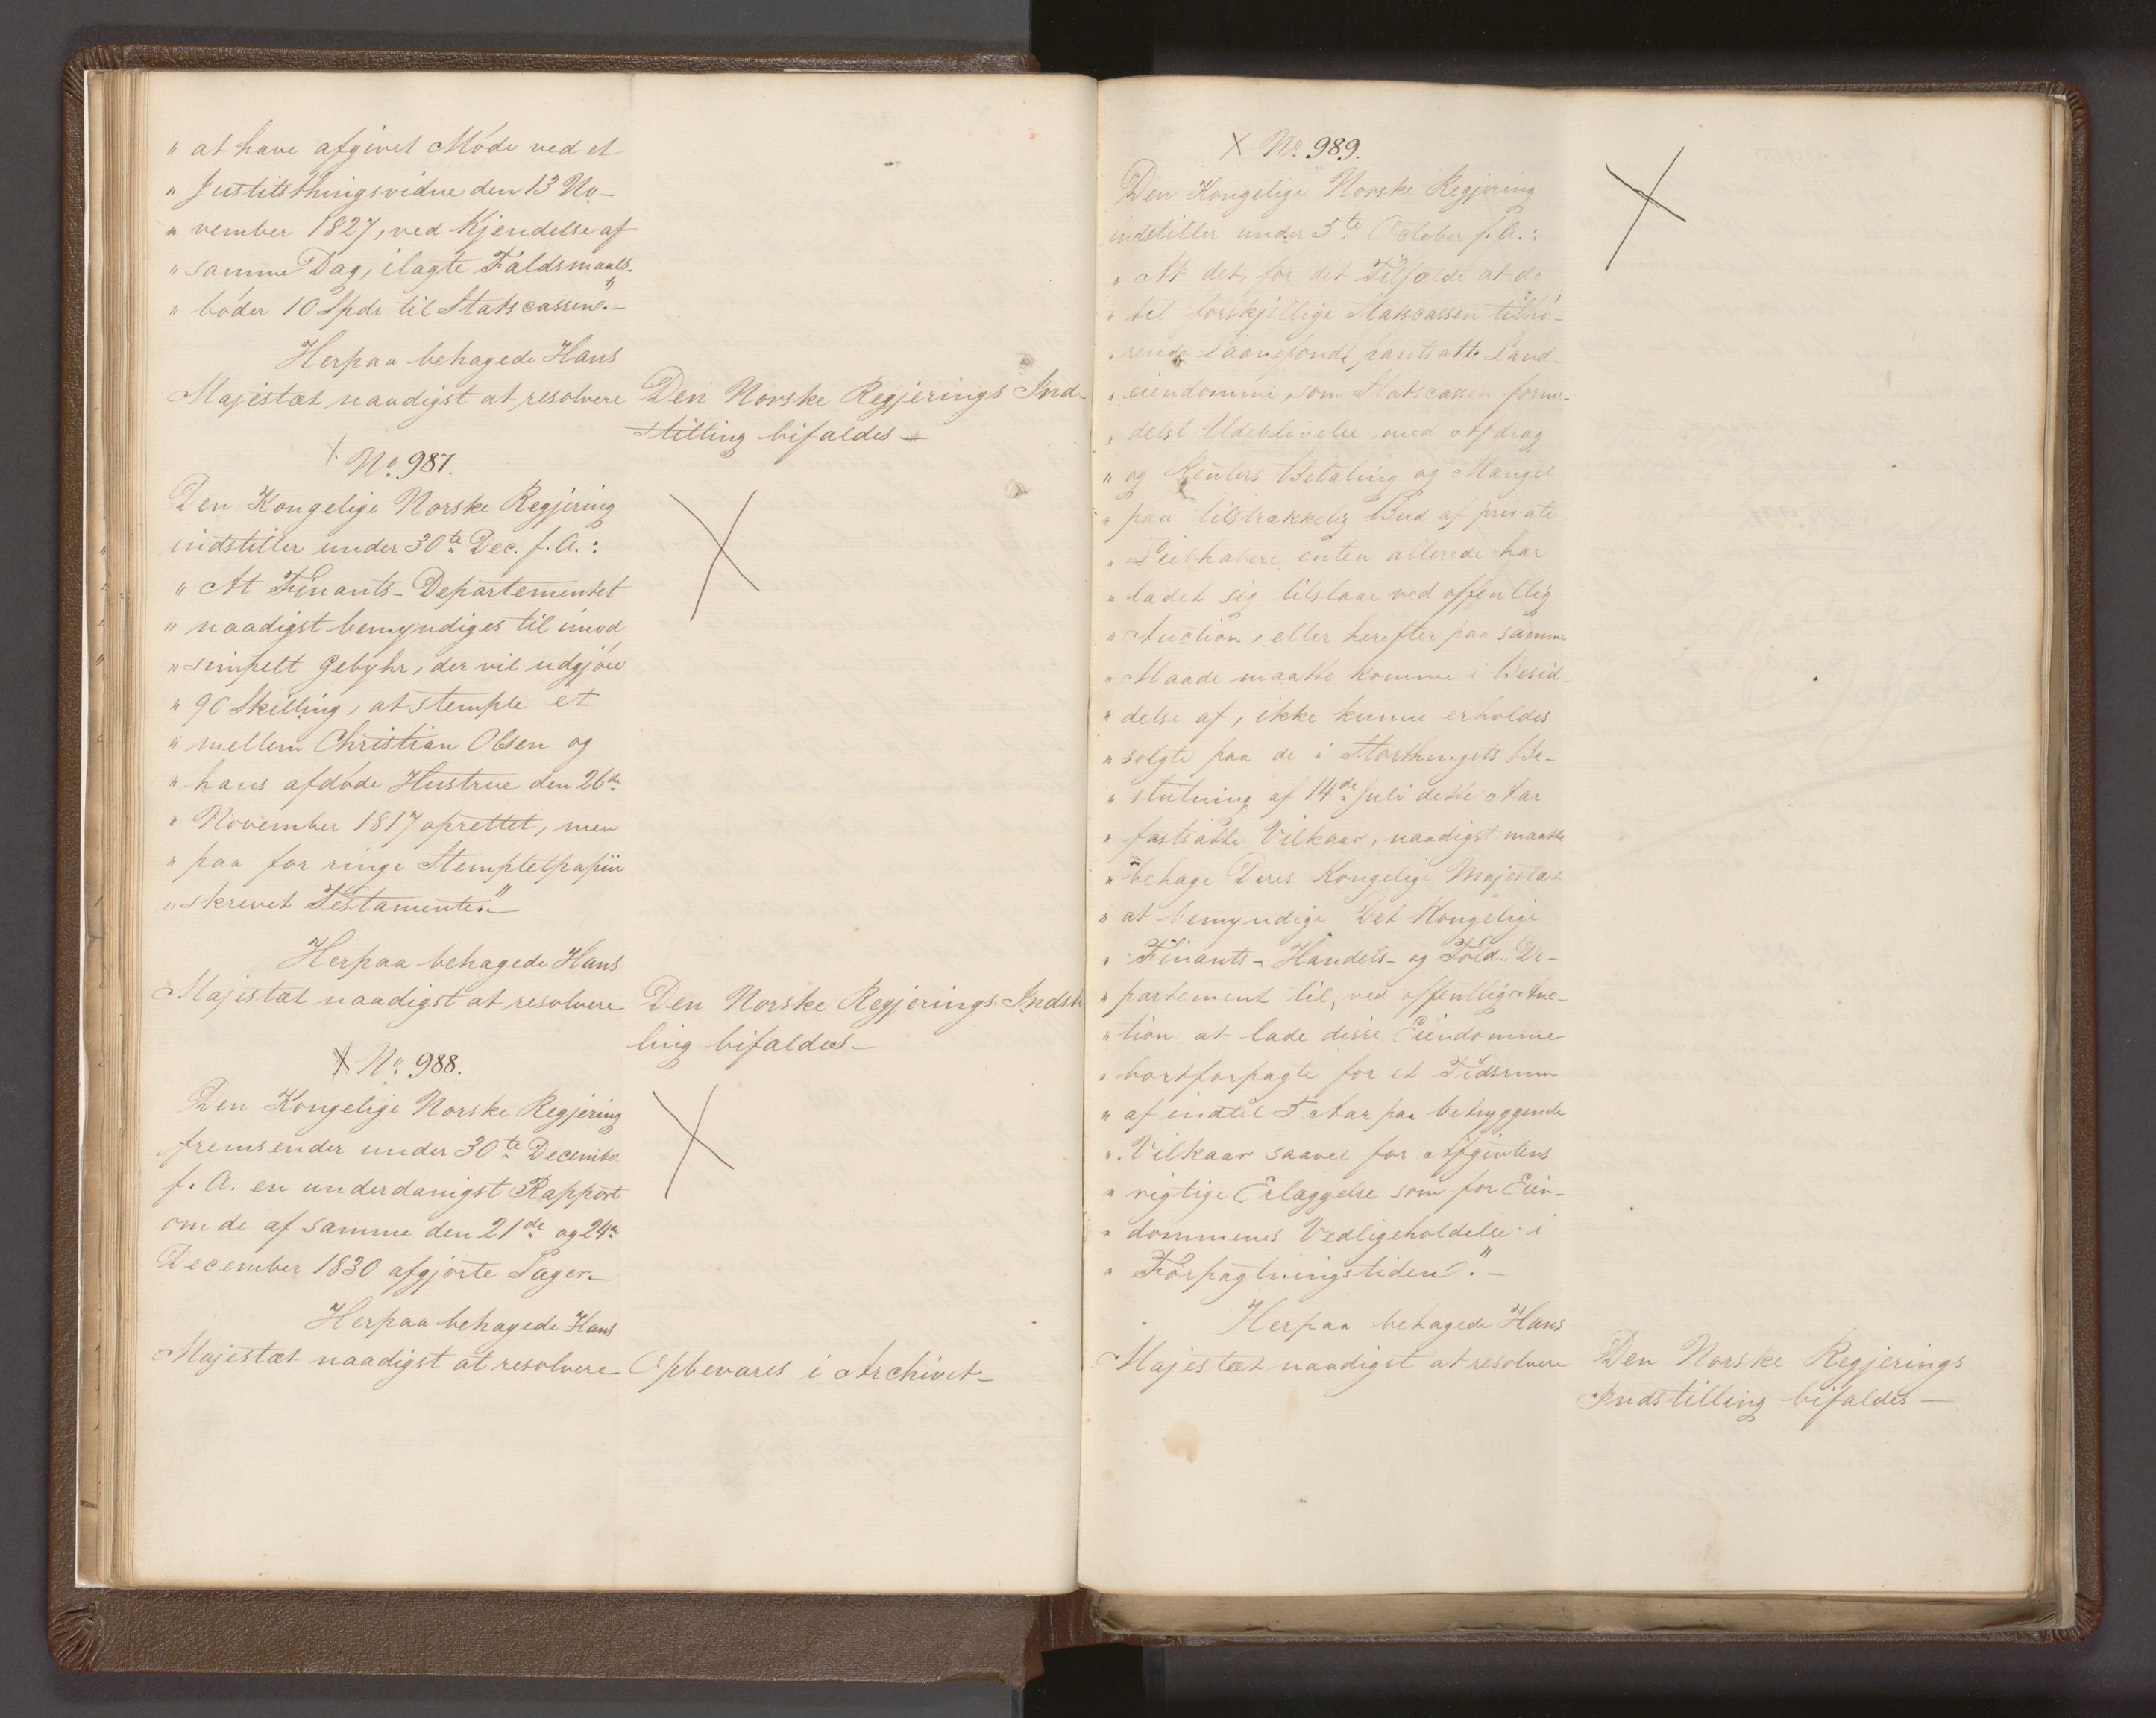 " at have afgivet Møde ved et
" Justitsthingsvidne den 13 No-
" vember 1827, ved Kjendelse af
" samme Dag, ilagte Faldsmaals-
" bøder 10 Spdr til Statscassen."-
Herpaa behagede Hans
Majestæt naadigst at resolvere Den Norske Regjerings Ind-
stilling bifaldes -
X No. 987.
Den Kongelige Norske Regjering
indstiller under 30te Dec. f. A.:
" At Finants-Departementet
" naadigst bemyndiges til imod
" simpelt Gebyhr, der vil udgjøre
" 90 Skilling, at stemple et
" mellem Christian Olsen og
" hans afdøde Hustrue den 26de
" November 1817 oprettet, men
" paa for ringe Stempletpapiir
" skrevet Testamente."-
Herpaa behagede Hans
Majestæt naadigst at resolvere Den Norske Regjerings Indstil
ling bifaldes -
X No. 988.
Den Kongelige Norske Regjering
fremsender under 30te December
f. A. en underdanigst Rapport
om de af samme den 21de og 24de
December 1830 afgjorte Sager.-
Herpaa behagede Hans
Majestæt naadigst at resolvere Opbevares i Archivet -
X No. 989.
Den Kongelige Norske Regjering
indstiller under 5te October f. A.:
" At det, for det Tilfælde at de
" til forskjellige Statscassen tilhø-
" rende Laanefonds pantsatte Land-
" eiendomme, som Statscassen forme-
" delst Udeblivelse med Afdrag
" og Renters Betaling og Mangel
" paa tilstrækkelig Bud af private
" Liebhabere, enten allerede har
" ladet sig tilslaae ved offentlig
" Auction, eller herefter paa samme
" Maade maatte komme i Besid-
" delse af, ikke kunne erholdes
" solgte paa de i Storthingets Be-
" slutning af 14de Juli dette Aar
" fastsatte Vilkaar, naadigst maatte
" behage Deres Kongelige Majestæt
" at bemyndige Det Kongelige
" Finants- Handels- og Told-De-
" partement til, ved offentlig Auc-
" tion at lade disse Eiendomme
" bortforpagte for et Tidsrum
" af indtil 5 Aar paa betryggende
" Vilkaar saavel for Afgivtens
" rigtige Erlæggelse som for Eien-
" dommenes Vedligeholdelse i
" Forpagtningstiden".-
Herpaa behagede Hans
Majestæt naadigst at resolvere Den Norske Regjerings
Indstilling bifaldes -